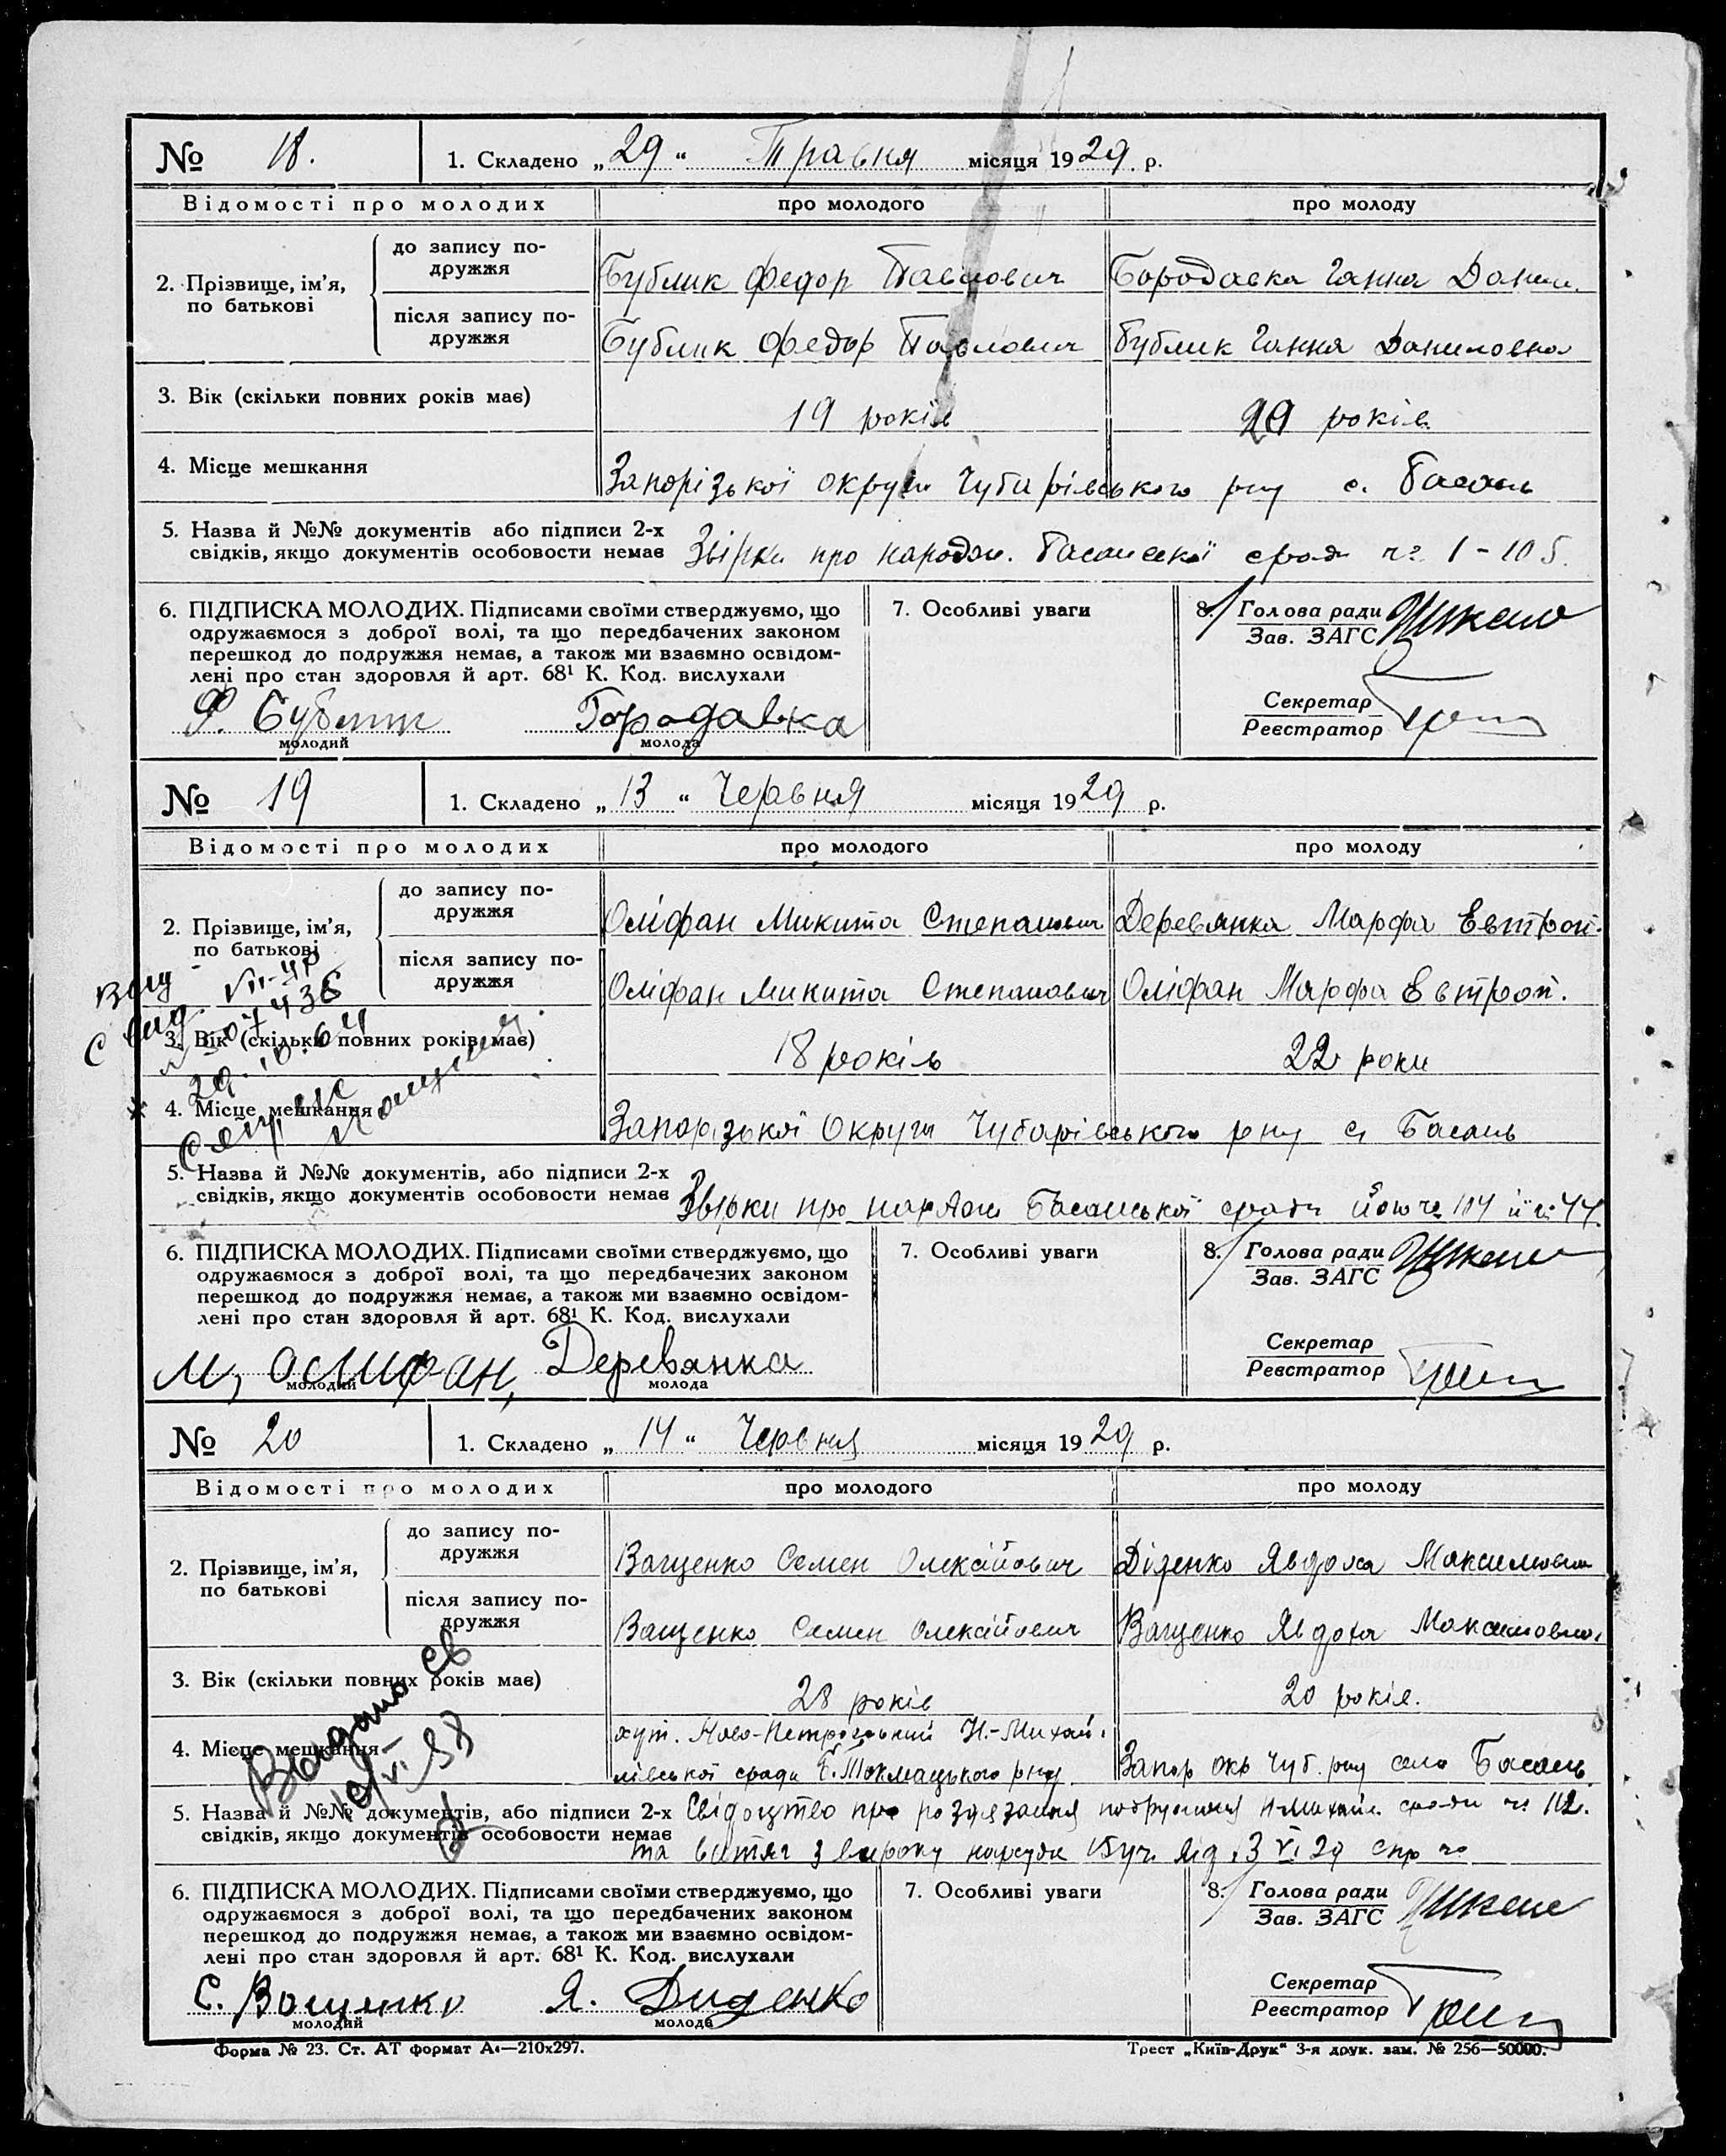 № 18. 1. Складено „29“ Травня місяця 1929 р.
Відомості про молодих про молодого про молоду
2. Прізвище, ім’я, по батькові
до запису подружжя Бублик Федор Павлович Бородавка Ганна Данил.
після запису подружжя Бублик Федор Павлович Бублик Ганна Даниловна
3. Вік (скільки повних років має) 19 років 20 років
4. Місце мешкання Запорізької округи Чубарівського р-ну с. Басань
5. Назва й №№ документів або підписи 2-х
свідків, якщо документів особовости немає Звірки про народж. Басанської сради ч. 1-105
6. ПІДПИСКА МОЛОДИХ. Підписами своїми стверджуємо, що
одружаємося з доброї волі, та що передбачених законом
перешкод до подружжя немає, а також ми взаємно освідом-
лені про стан здоровля й арт. 68¹ К. Код. вислухали
Ф. Бублик Бородавка
молодий молода
7. Особливі уваги
8. Голова ради
Зав. ЗАГС
Секретар
Реєстратор
№ 19 1. Складено „13“ Червня місяця 1929 р.
Відомості про молодих про молодого про молоду
2. Прізвище, ім’я, по батькові
до запису подружжя Оліфан Микита Степанович Деревянка Марфа Евтроп.
після запису подружжя Оліфан Микита Степанович Оліфан Марфа Евтроп.
3. Вік (скільки повних років має) 18 років 22 роки
4. Місце мешкання Запорізької Округи Чубарівського р-ну с. Басань
5. Назва й №№ документів, або підписи 2-х
свідків, якщо документів особовости немає Звірки про народж Басанської сради 104 й 44
6. ПІДПИСКА МОЛОДИХ. Підписами своїми стверджуємо, що
одружаємося з доброї волі, та що передбачених законом
перешкод до подружжя немає, а також ми взаємно освідом-
лені про стан здоровля й арт. 68¹ К. Код. вислухали
М, Олифан, Деревянка
молодий молода
7. Особливі уваги
8. Голова ради
Зав. ЗАГС
Секретар
Реєстратор
№ 20 1. Складено „14“ Червня місяця 1929 р.
Відомості про молодих про молодого про молоду
2. Прізвище, ім’я, по батькові
до запису подружжя Ващенко Семен Олексійович Діденко Явдоха Максимовна
після запису подружжя Ващенко Семен Олексійович Ващенко Явдоха Максимовна
3. Вік (скільки повних років має) 28 років 20 років.
4. Місце мешкання хут. Ново-Петрівський Н.-Михай-
лівської сради Б. Токмацького р-ну Запор окр Чуб. р-ну село Басань
Видано св
5. Назва й №№ документів, або підписи 2-х Свідоцтво про розвязання подружжя Н-Михайл. сради ч. 112.
свідків, якщо документів особовости немає та витяг з вироку нарсуда від 3 VI 29
6. ПІДПИСКА МОЛОДИХ. Підписами своїми стверджуємо, що
одружаємося з доброї волі, та що передбачених законом
перешкод до подружжя немає, а також ми взаємно освідом-
лені про стан здоровля й арт. 68¹ К. Код. вислухали
С. Ващенко Я. Диденко
молодий молода
7. Особливі уваги
8. Голова ради
Зав. ЗАГС
Секретар
Реєстратор
Форма № 23. Ст. АТ формат А₄—210x297. Трест „Київ-Друк“ 3-я друк. зам. № 256—50000.